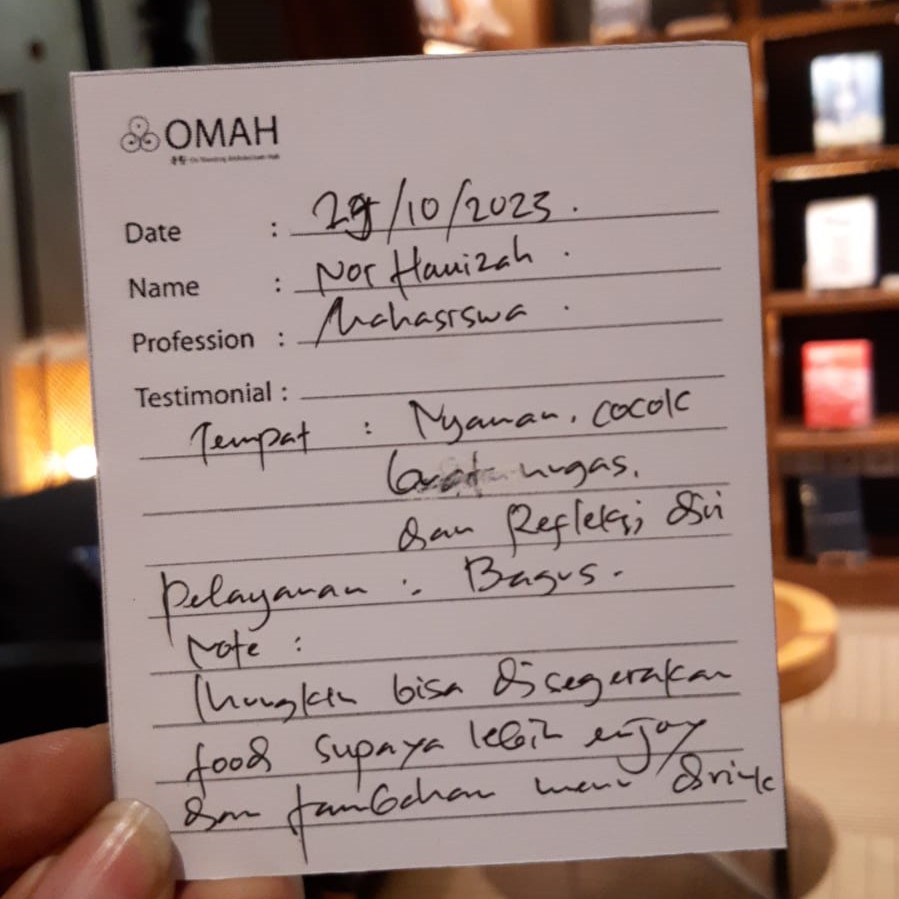 OMAH
Date : 29/10/2023.
Name : Nor Hanizah.
Profession : Mahasiswa.
Testimonial :
Tempat : Nyaman, cocok
buat nugas.
dan Refleksi diri
Pelayanan : Bagus.
Note :
Mungkin bisa disegerakan
food supaya lebih enjoy
dan tambahan menu drink